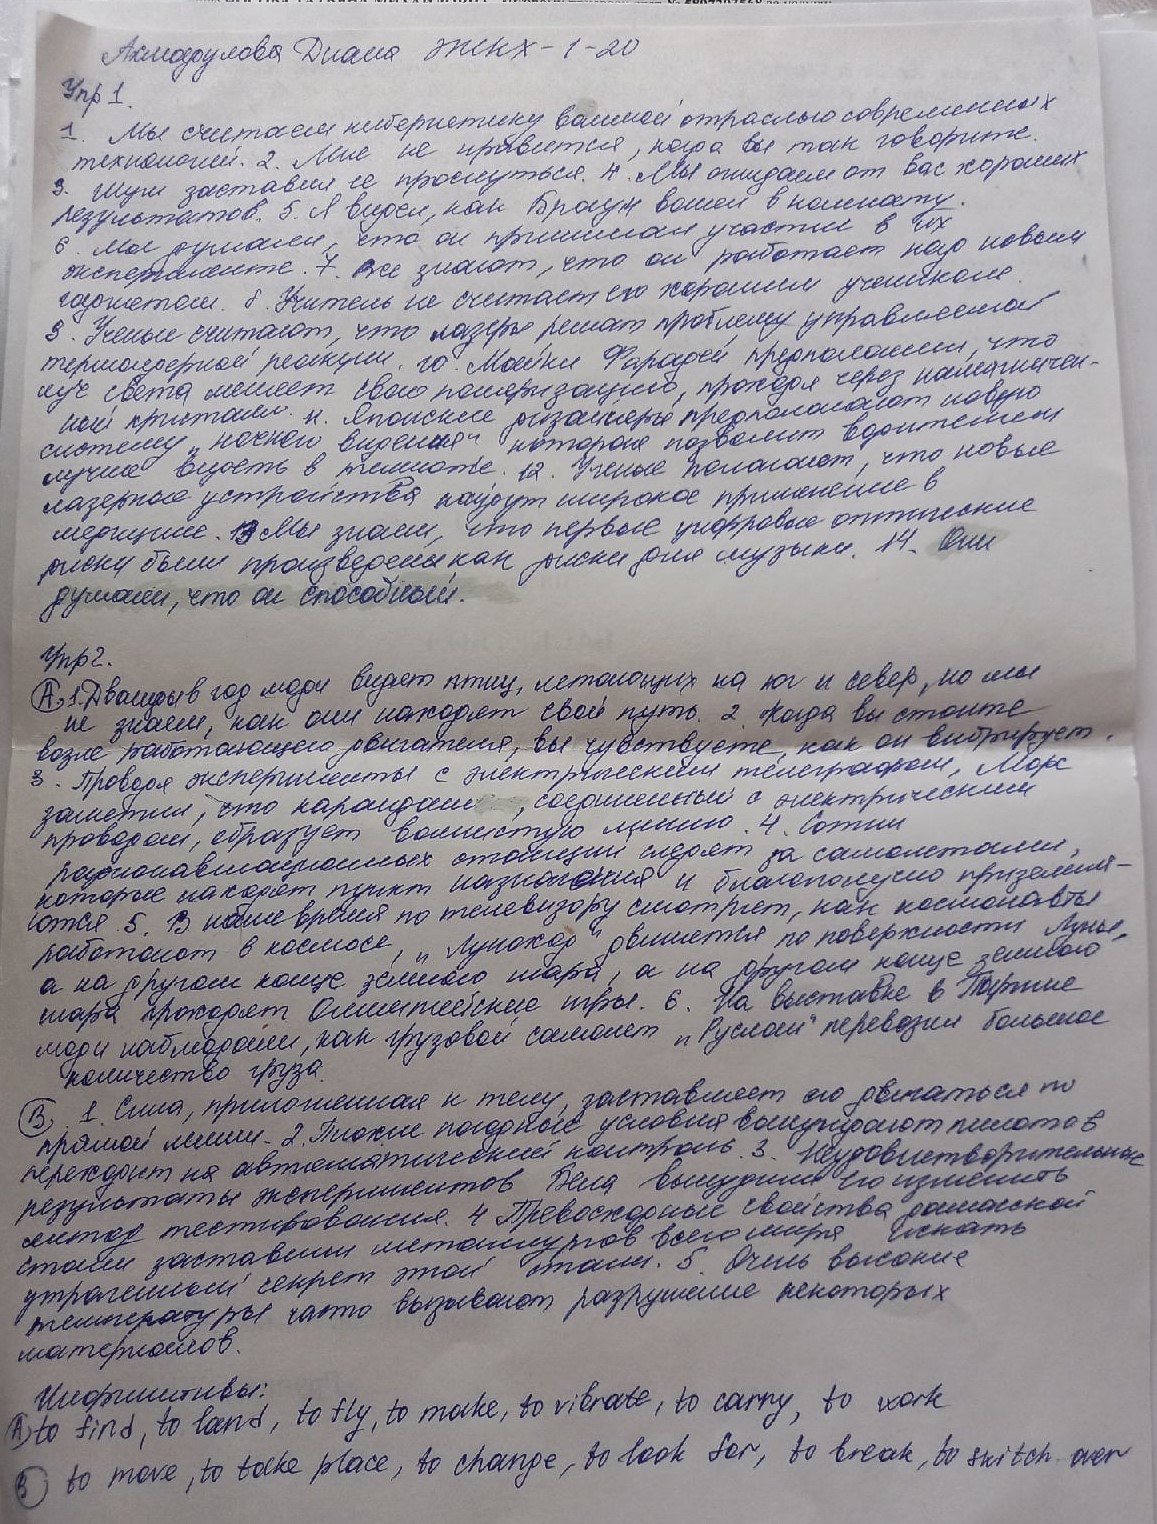 Ахмадулова Диана ЖКХ-1-20
Упр 1.
1. Мы считаем кибернетику важной отраслью современных
технологий. 2. Мне не нравится, когда вы так говорите.
3. Шум заставил её проснуться. 4. Мы ожидаем от вас хороших
результатов. 5. Я видел, как Браун вошел в комнату.
6. Мы думаем, что он принимал участие в их
эксперименте. 7. Все знают, что он работает над новым
гаджетом. 8. Учитель не считает его хорошим учеником.
9. Ученые считают, что лазеры решат проблему управляемой
термоядерной реакции. 10. Майкл Фарадей предположил, что
луч света меняет свою поляризацию, проходя через намагничен-
ный кристалл. 11. Японские дизайнеры предполагают новую
систему „ночного видения" которая позволит водителям
лучше видеть в темноте. 12. Ученые полагают, что новые
лазерные устройства найдут широкое применение в
медицине. 13 Мы знаем, что первые цифровые оптические
диски были произведены как диски для музыки. 14. Они
думают, что он способный.
Упр 2.
А, 1. Дважды в год люди видят птиц, летающих на юг и север, но мы
не знаем, как они находят свой путь. 2. Когда вы стоите
возле работающего двигателя, вы чувствуете, как он вибрирует.
3. Проводя эксперименты с электрическим телеграфом, Морс
заметил, что карандаш, соединенный с электрическим
проводом, образует волнистую линию. 4. Сотни
радионавигационных станций следят за самолетами,
которые находят пункт назначения и благополучно приземля-
ются. 5. В наше время по телевизору смотрят, как космонавты
работают в космосе, „Луноход" движется по поверхности Луны,
а на другом конце земного шара, а на другом конце земного
шара проходят Олимпийские игры. 6. На выставке в Париже
люди наблюдали, как грузовой самолет „Руслан" перевозил большое
количество груза.
В, 1. Сила, приложенная к телу, заставляет его двигаться по
прямой линии. 2. Плохие погодные условия вынуждают пилотов
переходить на автоматический контроль. 3. Неудовлетворительные
результаты экспериментов Белла вынудили его изменить
метод тестирования. 4 Превосходные свойства дамасской
стали заставили металлургов всего мира искать
утраченный секрет этой стали. 5. Очень высокие
температуры часто вызывают разрушение некоторых
материалов.
Инфинитивы:
А) to find, to land, to fly, to make, to vibrate, to carry, to work
В) to move, to take place, to change, to look for, to break, to switch over